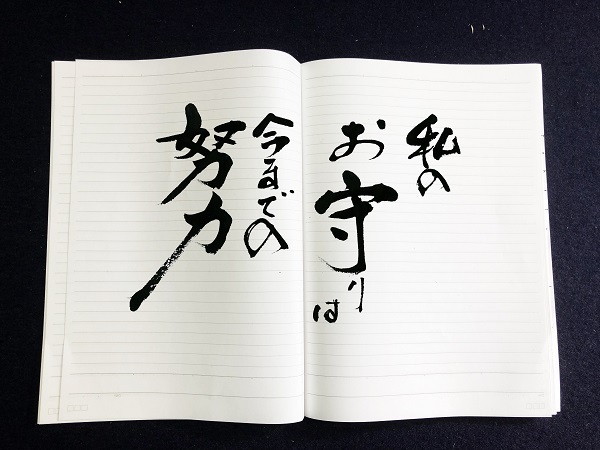 私の
お守りは
今までの
努力